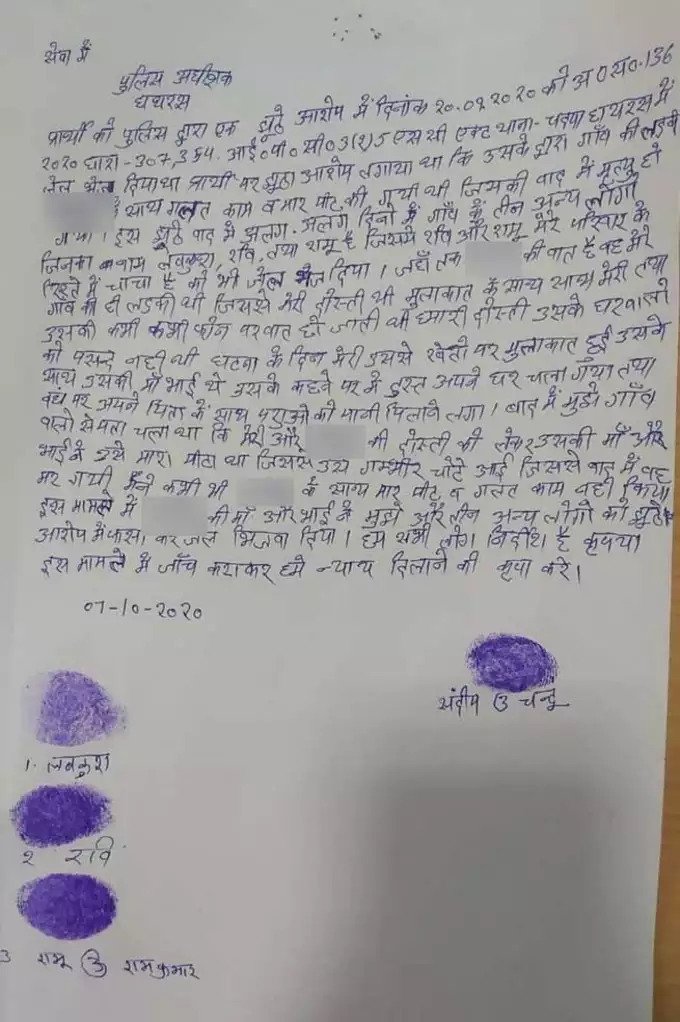 सेवा में
पुलिस अधीक्षक
हाथरस
प्रार्थी को पुलिस द्वारा एक झूठे आरोप में दिनांक २०.०९.२०२० को अ०स०.136
२०२० धारा-307, ३५४. आई०पी०सी० 3(2)5 एस सी एक्ट थाना-चन्दपा हाथरस में
जेल भेज दिया था प्रार्थी पर झूठा आरोप लगाया था कि उसके द्वारा गाँव की लडकी
के साथ गलत काम व मार पीट की गयी थी जिसकी बाद में मृत्यु हो
गयी। इस झूठे वाद में अलग-अलग दिनों में गाँव के तीन अन्य लोगों
जिनका नाम लवकुश, रवि, तथा रामू है जिसमे रवि और रामू मेरे परिवार के
रिश्ते में चाचा है को भी जेल भेज दिया। जहाँ तक की बात है वह मेरे
गाँव की ही लडकी थी जिससे मेरी दोस्ती थी मुलाकात के साथ साथ मेरी तथा
उसकी कभी कभी फोन पर बात हो जाती थी हमारी दोस्ती उसके घरवालो
को पसन्द नही थी घटना के दिन मेरी उससे खेतो पर मुलाकात हुई उसके
साथ उसकी माँ भाई थे उसके कहने पर मै तुरन्त अपने घर चला गया तथा
वहां पर अपने पिता के साथ पशुओ को पानी पिलाने लगा। बाद में मुझे गाँव
वालो से पता चला था कि मेरी और की दोस्ती को लेकर उसकी माँ और
भाई ने उसे मारा पीटा था जिससे उसे गम्भीर चोटे आई जिससे बाद में वह
मर गयी मैने कभी भी के साथ मार पीट व गलत काम नही किया
इस मामले में की माँ और भाई ने मुझे और तीन अन्य लोगो को झूठे
आरोप में फसा कर जेल भिजवा दिया। हम सभी लोग निर्दोष है कृपया
इस मामले में जाँच कराकर हमे न्याय दिलाने की कृपा करे।
07-10-२०२०
संदीप उ चन्दू
1. लवकुश
२ रवि
3 रामू उ रामकुमार